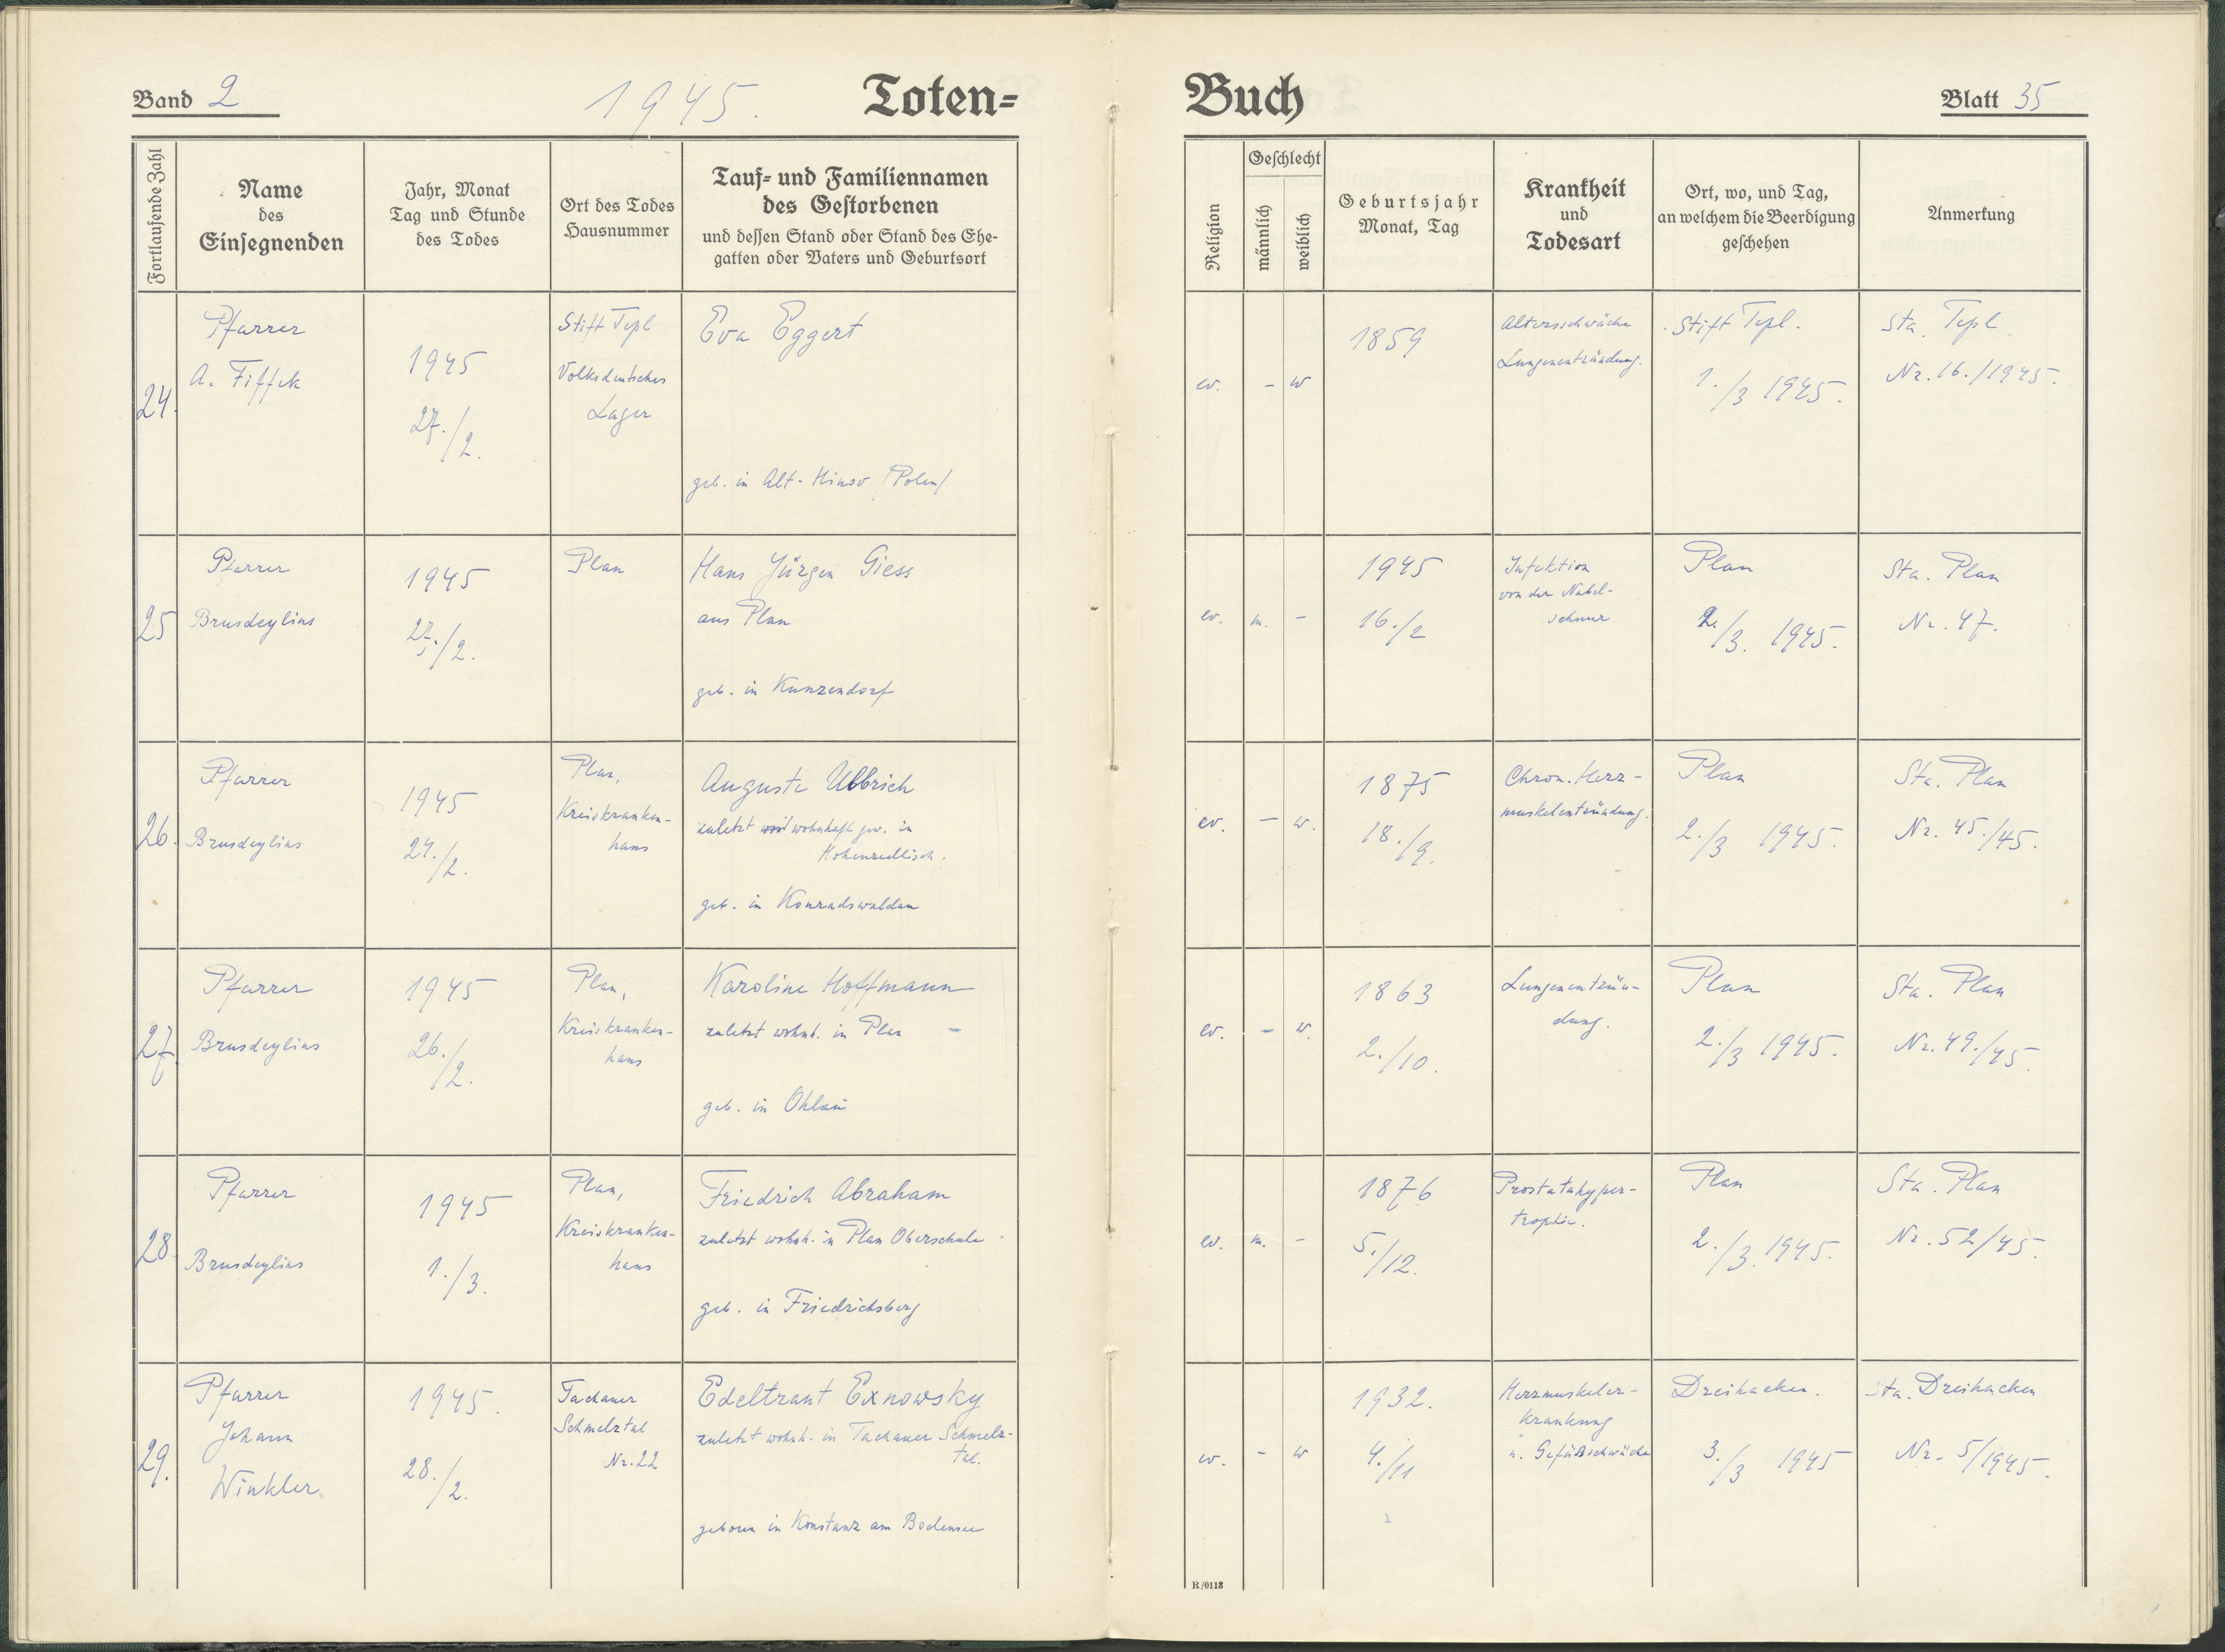 Band 2
1945.
Toten-
Buch
Blatt 35
Fortlaufende Zahl
Name
des
Einsegnenden
Jahr, Monat
Tag und Stunde
des Todes
Ort des Todes
Hausnummer
Tauf- und Familiennamen
des Gestorbenen
und dessen Stand oder Stand des Ehe-
gatten oder Vaters und Geburtsort
Religion
Geschlecht
männlich
weiblich
Geburtsjahr
Monat, Tag
Krankheit
und
Todesart
Ort, wo, und Tag,
an welchem die Beerdigung
geschehen
Anmerkung
24.
Pfarrer
A. Fiffek
1945
27./2.
Stift Tepl
Volksdeutsches
Lager
Eva Eggert
geb. in Alt-Hinsv /Polen/
ev.
- w
1859
Altersschwäche
Lungenentzündung.
Stift Tepl.
1./3 1945.
Sta. Tepl
Nr. 16./1945.
25
Pfarrer
Brusdeylins
1945
27./2.
Plan
Hans Jürgen Giess
aus Plan
geb. in Kunzendorf
ev.
m. -
1945
16./2
Infektion
von der Nabel-
schnur
Plan
2./3. 1945.
Sta. Plan
Nr. 47.
26.
Pfarrer
Brusdeylins
1945
24./2.
Plan,
Kreiskranken-
haus
Auguste Ulbrich
zuletzt wohnhaft gew. in
Hohenzedlisch.
geb. in Konradswaldau
ev.
- w.
1875
18./9.
Chron. Herz-
muskelentzündung.
Plan
2./3 1945.
Sta. Plan
Nr. 45./45.
27.
Pfarrer
Brusdeylins
1945
26./2.
Plan,
Kreiskranken-
haus
Karoline Hoffmann
zuletzt wohnh. in Plan -
geb. in Ohlau
ev.
- w.
1863
2./10.
Lungenentzün-
dung.
Plan
2./3 1945.
Sta. Plan
Nr. 49./45.
28
Pfarrer
Brusdeylins
1945
1./3.
Plan,
Kreiskranken-
haus
Friedrich Abraham
zuletzt wohnh. in Plan Oberschule.
geb. in Friedrichsberg
ev.
m. -
1876
5./12.
Prostatahyper-
trophie.
Plan
2./3. 1945.
Sta. Plan
Nr. 52/45.
29.
Pfarrer
Johann
Winkler
1945.
28./2.
Tachauer
Schmelztal
Nr. 22
Edeltraut Exnowsky
zuletzt wohnh. in Tachauer Schmelz-
tal.
geboren in Konstanz am Bodensee
ev.
- w
1932.
4./11
Herzmuskeler-
krankung
u. Gefäßschwäche
Dreihacken.
3./3 1945
Sta. Dreihacken
Nr. 5/1945.
R/0118